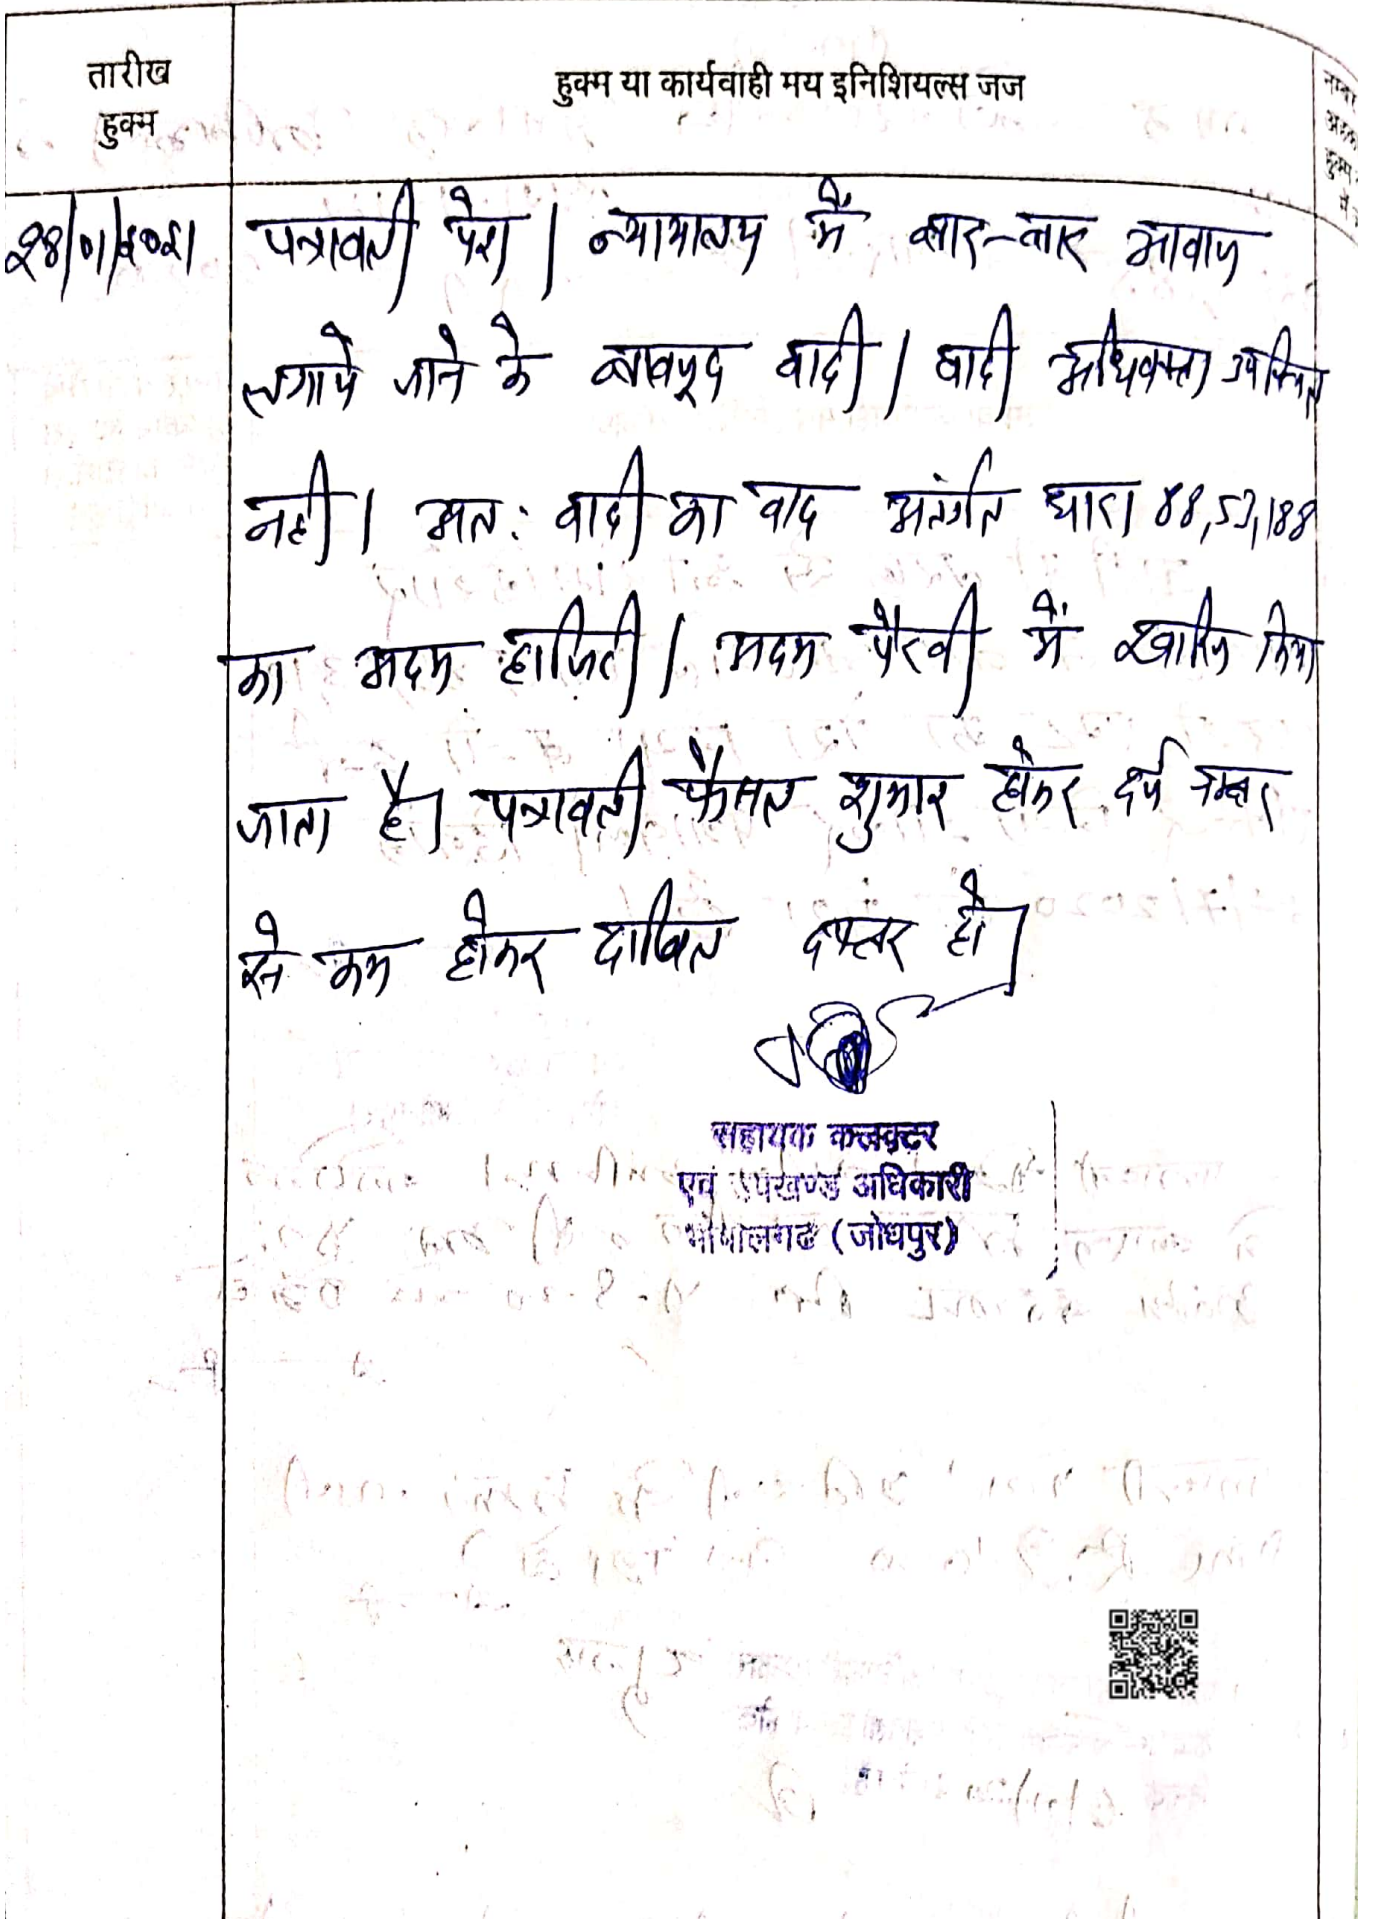 तारीख
हुक्म
हुक्म या कार्यवाही मय इनिशियल्स जज
नम्बर
हुक्म
में
पत्रावली पेश। न्यायालय में बार-बार आवाज
लगाये जाने के बावजूद वादी / वादी अधिवक्ता उपस्थित
नही। अतः वादी का वाद अर्न्तगत धारा 88,53,188
का अदम हाजिरी / अदम पैरवी में खारिज किया
जाता है। पत्रावली फैसल शुमार होकर दर्ज नम्बर
से कम होकर दाखिल दफ्तर हो।
सहायक कलक्टर
एवं उपखण्ड अधिकारी
भोपालगढ (जोधपुर)